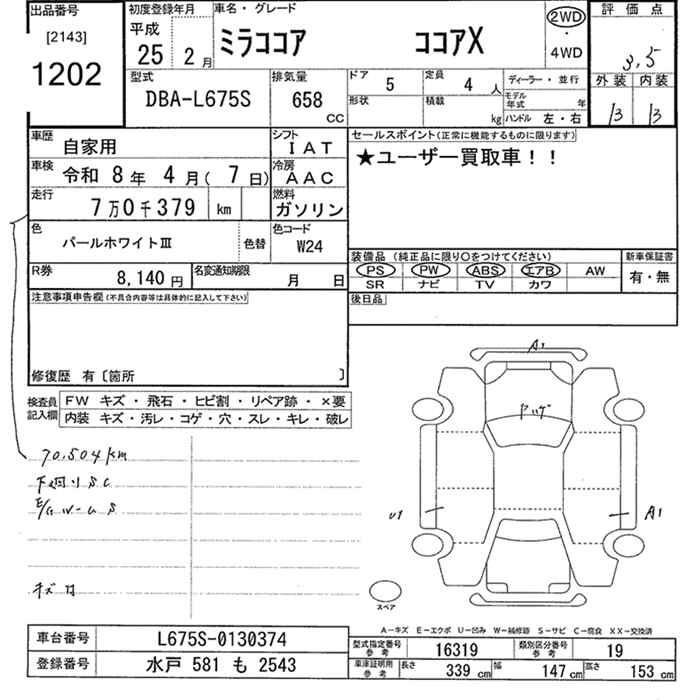 出品番号
[2143]
1202
初度登録年月
平成
25 2 月
車名・グレード
ミラココア ココアX
2WD
・
4WD
評価点
3.5
外装 内装
B B
型式
DBA-L675S
排気量
658 CC
ドア 5
定員 4 人
ディーラー・並行
形状
積載 kg
モデル年式 年
ハンドル 左・右
車歴 自家用
シフト IAT
車検 令和 8 年 4 月( 7 日)
冷房 AAC
走行 7万0千379 km
燃料 ガソリン
色 パールホワイトⅢ 色替
色コード W24
R券 8,140 円
名変通知期限 月 日
セールスポイント(正常に機能するものに限ります)
★ユーザー買取車!!
装備品 (純正品に限り○をつけてください)
新車保証書
PS PW ABS エアB AW
SR ナビ TV カワ
有・無
後日品
注意事項申告欄(不具合内容等は具体的に記入して下さい)
修復歴 有〔箇所 〕
検査員記入欄
FW キズ・飛石・ヒビ割・リペア跡・×要
内装 キズ・汚レ・コゲ・穴・スレ・キレ・破レ
70,504km
下廻りSC
キズ
A1
ヤッゲ
U1
A1
スペア
A-キズ E-エクボ U-凹み W-補修跡 S-サビ C-腐食 XX-交換済
車台番号 L675S-0130374
登録番号 水戸 581 も 2543
型式指定番号 参考 16319
類別区分番号 参考 19
車庫証明用 参考 長さ 339 cm 幅 147 cm 高さ 153 cm